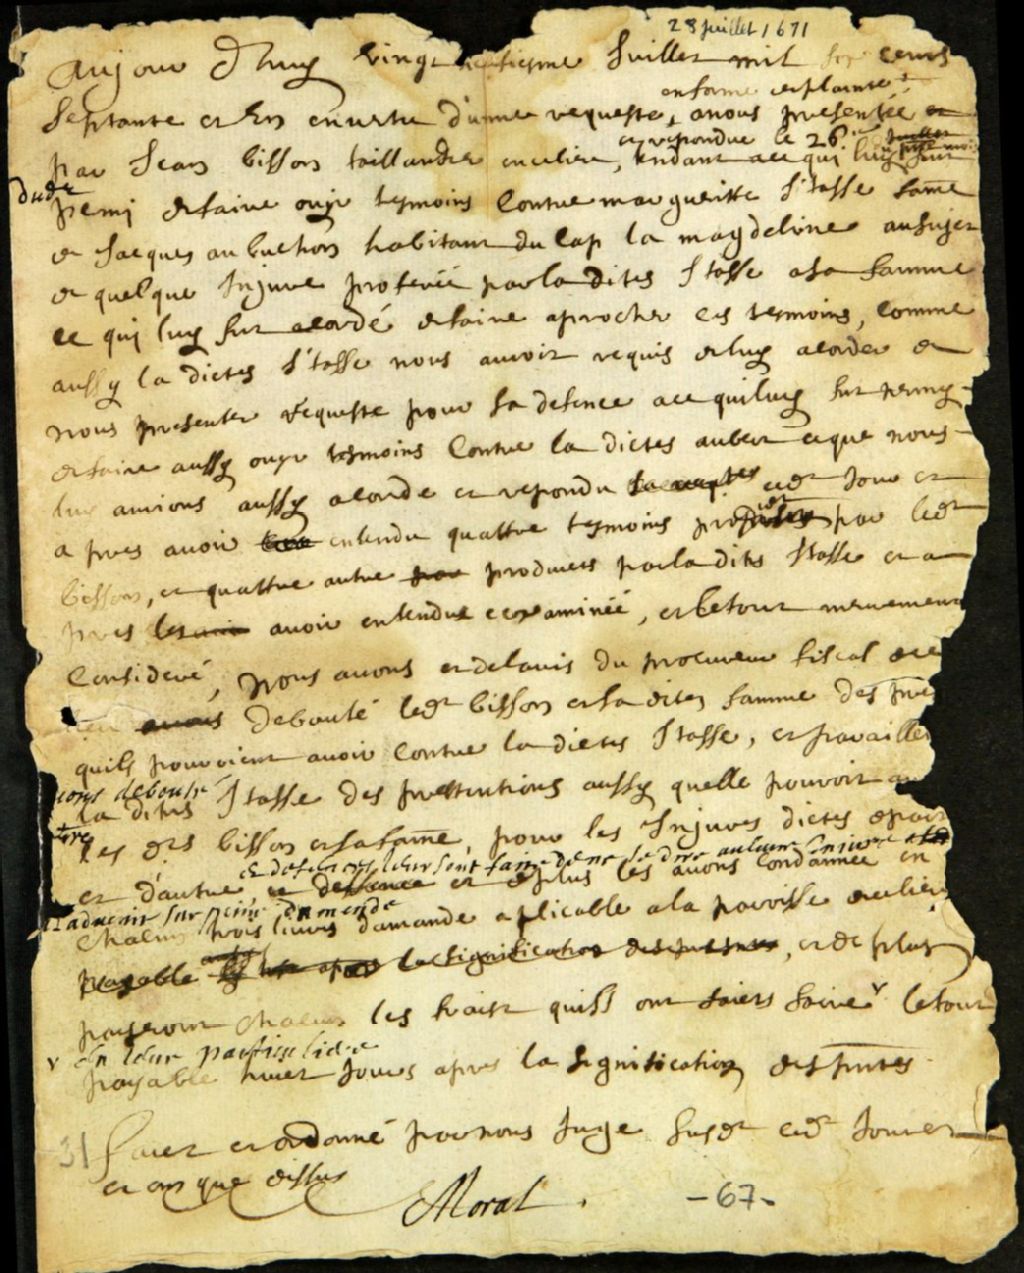 28 juillet 1671
Aujourdhuy vingt huictiesme Juillet mil six cents
enforme et plainte
septante et En en vertu dunne requeste, a nous presentée et
et repondue le 26e
par Jean bisson taillandie en celieu, tendant ace qui luy fut
dudt
permi de faire ouyr tesmoins Contre margueritte Itasse fame
de Jacques aubuchon habitant du Cap la magdeleine ausujet
de quelque Injure proferée par la dites Itasse a sa famme
ce qui luy fut acordé de faire aprocher ces tesmoins, comme
aussy la dictes Itasse nous auroit requis de luy acorder de
nous presenter requeste pour sa defence ace quiluy fut permy
de faire aussy ouyr tesmoins Contre la dictes auber ceque nous
luy aurions aussy acorde et repondu cedt Jour et
a pres avoir entendu quattre tesmoins par ledt
bisson, et quattre autre par produicts par la dits Itasse et a
pres les avoir entendue et examinée, et le tout meurement
Consideré, Nous avons et de lavis du procureur fiscal de ce
lieu avons debouté ledt bisson et sa dites famme des pre
quils pouvoient avoir Contre la dictes Itasse, et pareillem
avons debouté
la dites Itasse des prettentions aussy quelle pouvoit av
Les dts bisson et sa fame, pour les Injures dictes de part
et defences leur sont faire de ne se dire aucune Injure
et d'autre et deffence et de plus les avons Condamnée en
Ladvenir sur peine damende
Chacun trois livres damande aplicable a la parroisse de celieu
payable la signification des presentes, et de plus
payeront Chacun les fraist quils ont faicts faire v le tout
v en leur particuliere
payable huict Jours apres la signification desputes
Faict et ordonné par nous Juge susdt cedt Jour et
et an que dessus
Moral
31
-67-